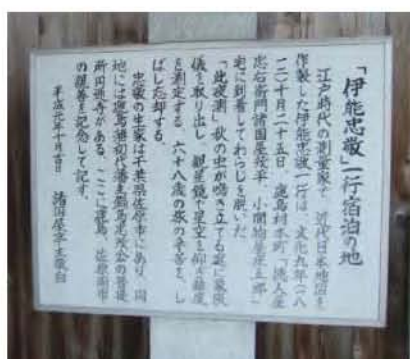 「伊能忠敬」一行宿泊の地
江戸時代の測量家で、近代日本地図を
作製した伊能忠敬一行は、文化九年(一八
一二)十月二十五日、鹿島村本町「
忠右衛門諸国屋 」小間物屋
宅に到着してわらじを脱いだ
「此夜測」秋の虫が鳴き立てる庭に象限
儀を取り出し、観星鏡で星空を仰ぎ緯度
を測定する。六十八歳の旅の辛苦を、し
ばし忘却する。
忠敬の生家は千葉県佐原市にあり、同
地には鹿島藩初代藩主鍋島忠茂公の菩提
所円通寺がある。ここに鹿島、佐原両市
の親善を記念して記す。
平成元年十月吉日 諸国屋亭主敬白